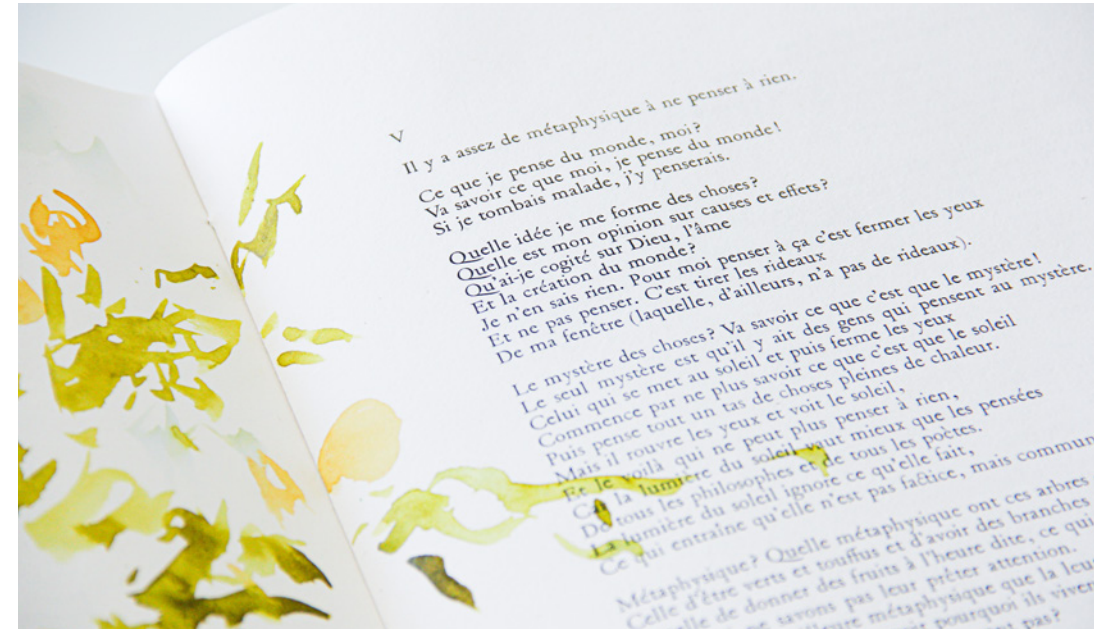 V
Il y a assez de métaphysique à ne penser à rien.
Ce que je pense du monde, moi?
Va savoir ce que moi, je pense du monde!
Si je tombais malade, j'y penserais.
Quelle idée je me forme des choses?
Quelle est mon opinion sur causes et effets?
Qu'ai-je cogité sur Dieu, l'âme
Et la création du monde?
Je n'en sais rien. Pour moi penser à ça c'est fermer les yeux
Et ne pas penser. C'est tirer les rideaux
De ma fenêtre (laquelle, d'ailleurs, n'a pas de rideaux).
Le mystère des choses? Va savoir ce que c'est que le mystère!
Le seul mystère est qu'il y ait des gens qui pensent au mystère.
Celui qui se met au soleil et puis ferme les yeux
Commence par ne plus savoir ce que c'est que le soleil
Puis pense tout un tas de choses pleines de chaleur.
Mais il rouvre les yeux et voit le soleil,
Et le voilà qui ne peut plus penser à rien,
Car la lumière du soleil vaut mieux que les pensées
De tous les philosophes et de tous les poètes.
La lumière du soleil ignore ce qu'elle fait,
Ce qui entraîne qu'elle n'est pas factice, mais commun
Métaphysique? Quelle métaphysique ont ces arbres
Celle d'être verts et touffus et d'avoir des branches
elle de donner des fruits à l'heure dite, ce qui
ne savons pas leur prêter attention.
métaphysique que la leur
pourquoi ils viven
pas?